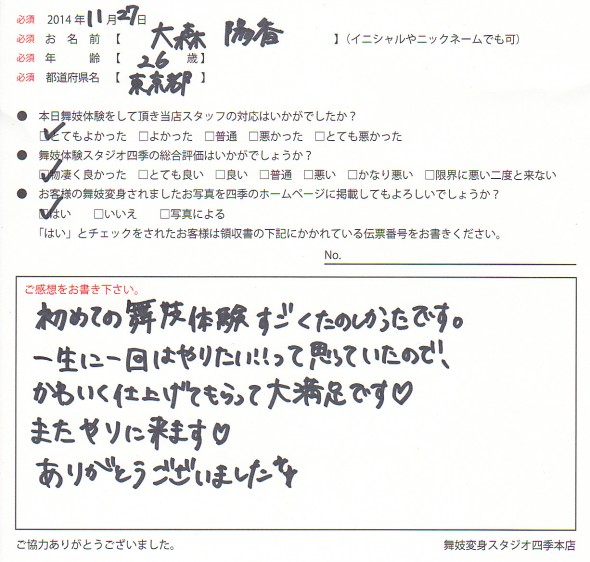 必須 2014年11月27日
必須 お名前【 大森 陽香 】(イニシャルやニックネームでも可)
必須 年齢【 26 歳】
必須 都道府県名【 東京都 】
● 本日舞妓体験をして頂き当店スタッフの対応はいかがでしたか?
☑とてもよかった □よかった □普通 □悪かった □とても悪かった
● 舞妓体験スタジオ四季の総合評価はいかがでしょうか?
☑物凄く良かった □とても良い □良い □普通 □悪い □かなり悪い □限界に悪い二度と来ない
● お客様の舞妓変身されましたお写真を四季のホームページに掲載してもよろしいでしょうか?
☑はい □いいえ □写真による
「はい」とチェックをされたお客様は領収書の下記にかかれている伝票番号をお書きください。
No.
ご感想をお書き下さい。
初めての舞妓体験すごくたのしかったです。
一生に一回はやりたい!!って思っていたので、
かわいく仕上げてもらって大満足です♡
またやりに来ます♡
ありがとうございました
ご協力ありがとうございました。
舞妓変身スタジオ四季本店